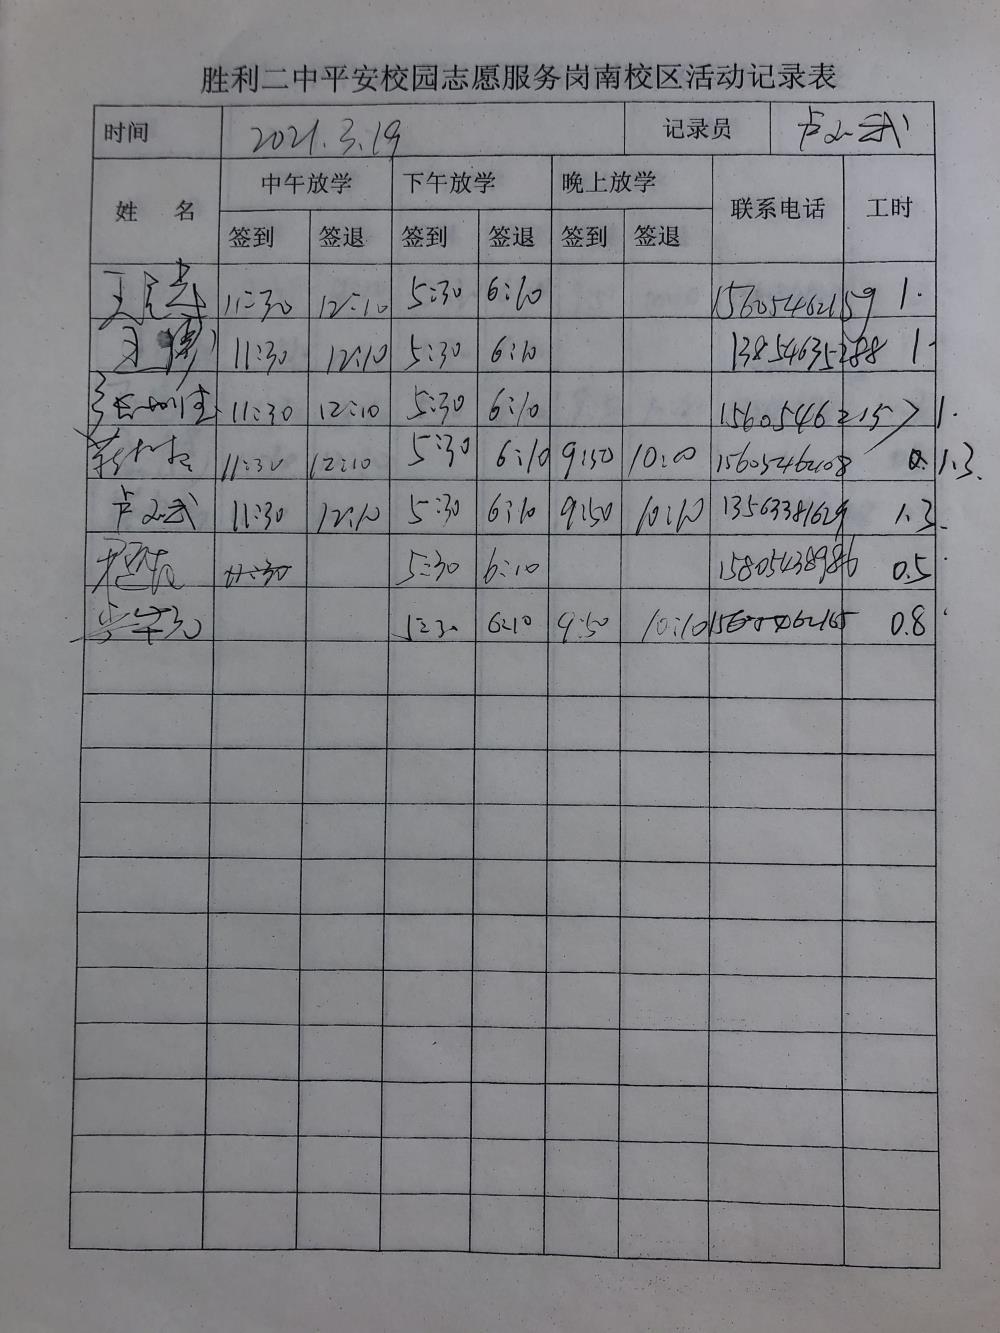 胜利二中平安校园志愿服务岗南校区活动记录表
时间 2021.3.19 记录员 卢文武
姓 名 中午放学 下午放学 晚上放学 联系电话 工时
签到 签退 签到 签退 签到 签退
11:30 12:10 5:30 6:10 15605462159 1.
11:30 12:10 5:30 6:10 13854635288 1.
11:30 12:10 5:30 6:10 15605462157 1.
11:30 12:10 5:30 6:10 9:50 10:00 15605462108 1.3.
卢文武 11:30 12:10 5:30 6:10 9:50 10:10 13563381629 1.3.
11:30 5:30 6:10 15805438986 0.5
5:30 6:10 9:50 10:10 0.8